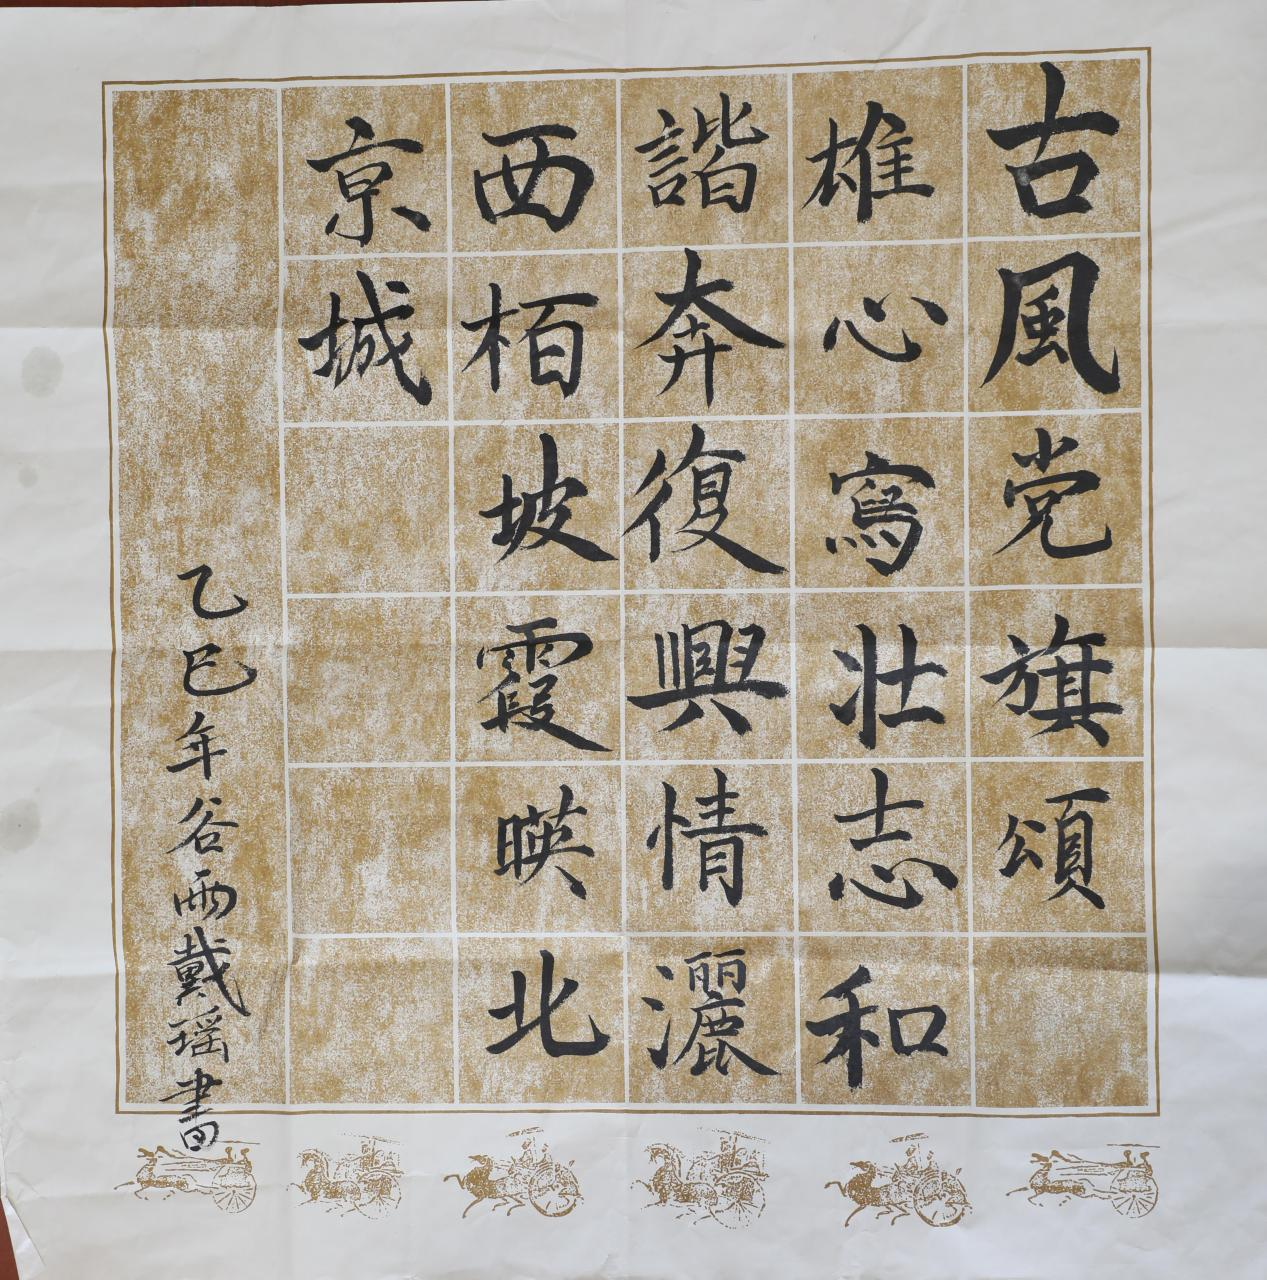 古風党旗頌
雄心寫壯志和
諧奔復興情灑
西柏坡霞暎北
京城
乙巳年谷雨戴瑶書